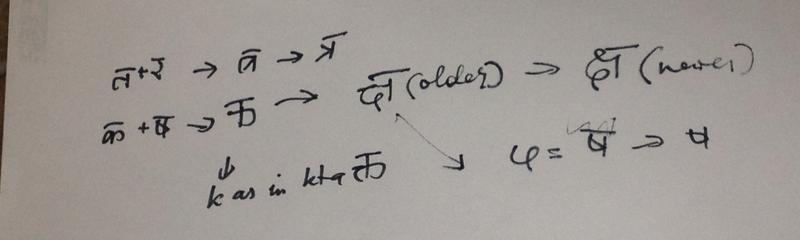 त + र → त्र → त्र
क + ष → क्त → क्ष (older) → क्ष (newer)
↓
k as in kta क्त
५ = ष → ष